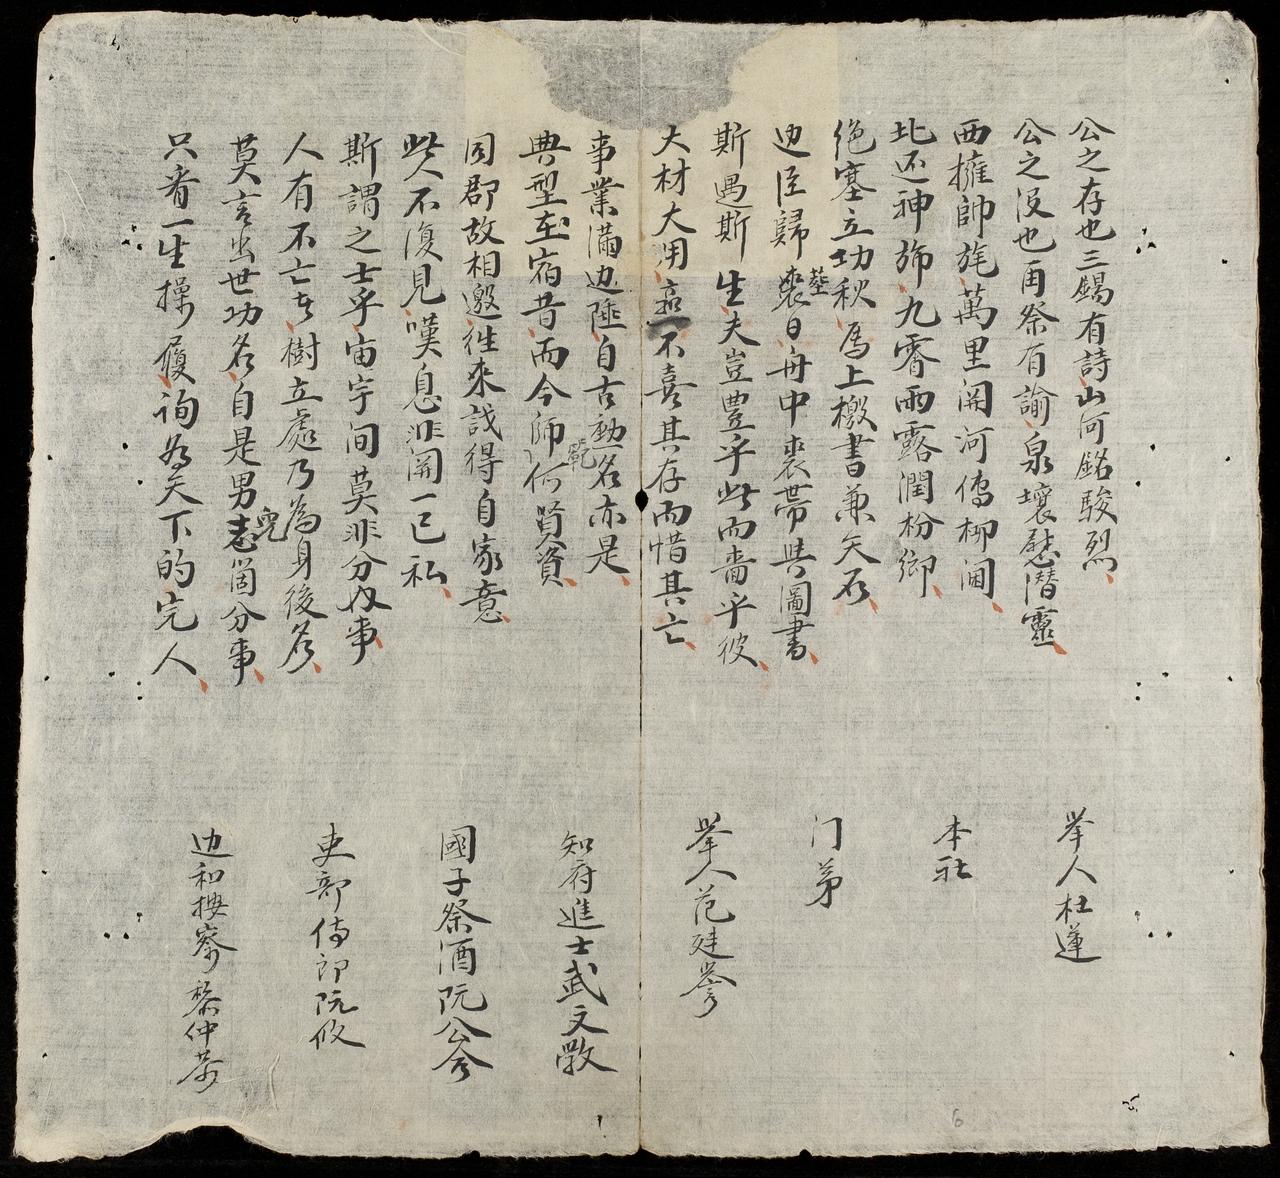 公之存也三錫有詩山河銘駿烈
公之没也再祭有諭泉壤慰潛靈
西擁帥旄萬里関河傳柳閫
北还神斾九霄雨露潤枌鄉
絶塞立功秋馬上檄書兼矢石
边臣歸襲日舟中裘帶共圖書
塟
斯遇斯生夫豈豊乎此而嗇乎彼
大材大用不喜其存而惜其亡
事業滿边陲自古勳名亦是
典型在宿昔而今師何賢資
範
同郡故相邀徃來説得自家意
此人不復見嘆息非関一己私
斯謂之士乎宙宇间莫非分内事
人有不亡者樹立處乃為身後名
莫言出世功名自是男志箇分事
兒
只看一生操履詢為天下的完人
举人杜蓮
本社
门弟
举人范廷誉
知府進士武文
國子祭酒阮公
吏部侍郎阮攸
边和按察黎仲